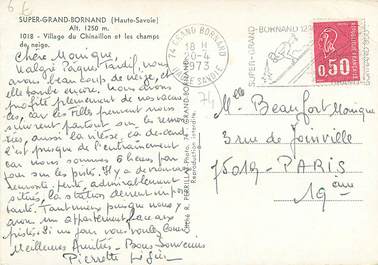 6 €
SUPER-GRAND-BORNAND (Haute-Savoie)
Alt. 1250 m.
1018 - Village du Chinaillon et les champs
de neige.
Chère Monique,
Malgré Pâques tardif, nous
avons beaucoup de neige, et
elle tombe encore. Nous avons
profité pleinement de nos vacan-
ces, car les filles peuvent nous
suivre partout sur les remon-
tées, aussi la vitesse, ça descend,
c'est presque de l'entrainement
car nous sommes 6 heures par
jour sur les pistes. Il y a de nouveaux
remonte-pente, admirablement
situés, la station devient impor-
tante. Tant mieux puisque nous y
avons un appartement face aux
pistes. Si un jour vous voulez
Meilleures Amitiés - Bons Souvenirs
Pierrette
Cliché R. PERRILLAT Photo 74 - GRAND-BORNAND
Reproduction interdite
74 GRAND BORNAND
18 H
20-4
1973
HAUTE SAVOIE
74
SUPER-GRAND-BORNAND
0,50
Melle Beaufort Monique
3 rue de Joinville
75019 - PARIS
19ème